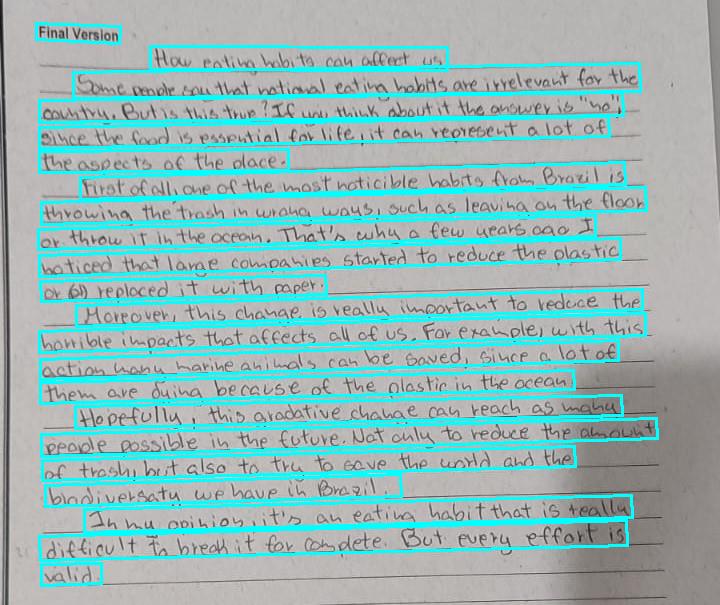 Final Version
How eating habits can affect us
Some people say that national eating habits are irrelevant for the
country. But is this true? If you think about it the answer is "no",
since the food is essential for life, it can represent a lot of
the aspects of the place.
First of all, one of the most noticible habits from Brazil is
throwing the trash in wrong ways, such as leaving on the floor
or throw it in the ocean. That's why a few years ago I
noticed that large companies started to reduce the plastic
or replaced it with paper.
Moreover, this change is really important to reduce the
horrible impacts that affects all of us. For example, with this
action many marine animals can be saved, since a lot of
them are dying because of the plastic in the ocean.
Hopefully, this gradative change can reach as many
people possible in the future. Not only to reduce the amount
of trash, but also to try to save the world and the
biodiversaty we have in Brazil.
In my opinion, it's an eating habit that is really
difficult to break it for complete. But every effort is
valid.